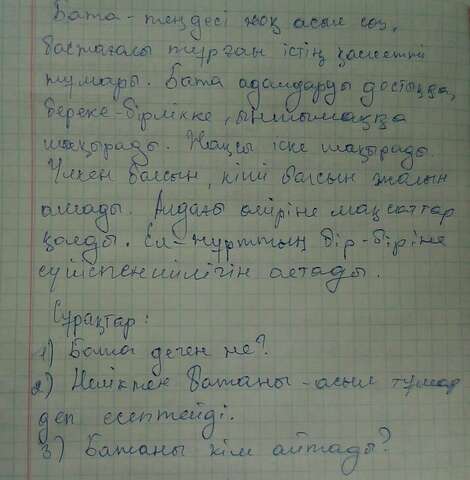 Бата - теңдесі жоқ асыл сөз,
бастағалы тұрған істің қасиетті
тұмары. Бата адамдарды достыққа,
береке-бірлікке, ынтымаққа
шақырады. Жақсы іске шақырады.
Үлкен болсын, кіші болсын
алады. Алдағы өміріне мақсаттар
қояды. Ел-жұрттың бір-біріне
сүйіспеншілігін
Сұрақтар:
1) Бата деген не?
2) Неліктен батаны - асыл тұмар
деп есептейді.
3) Батаны кім айтады?